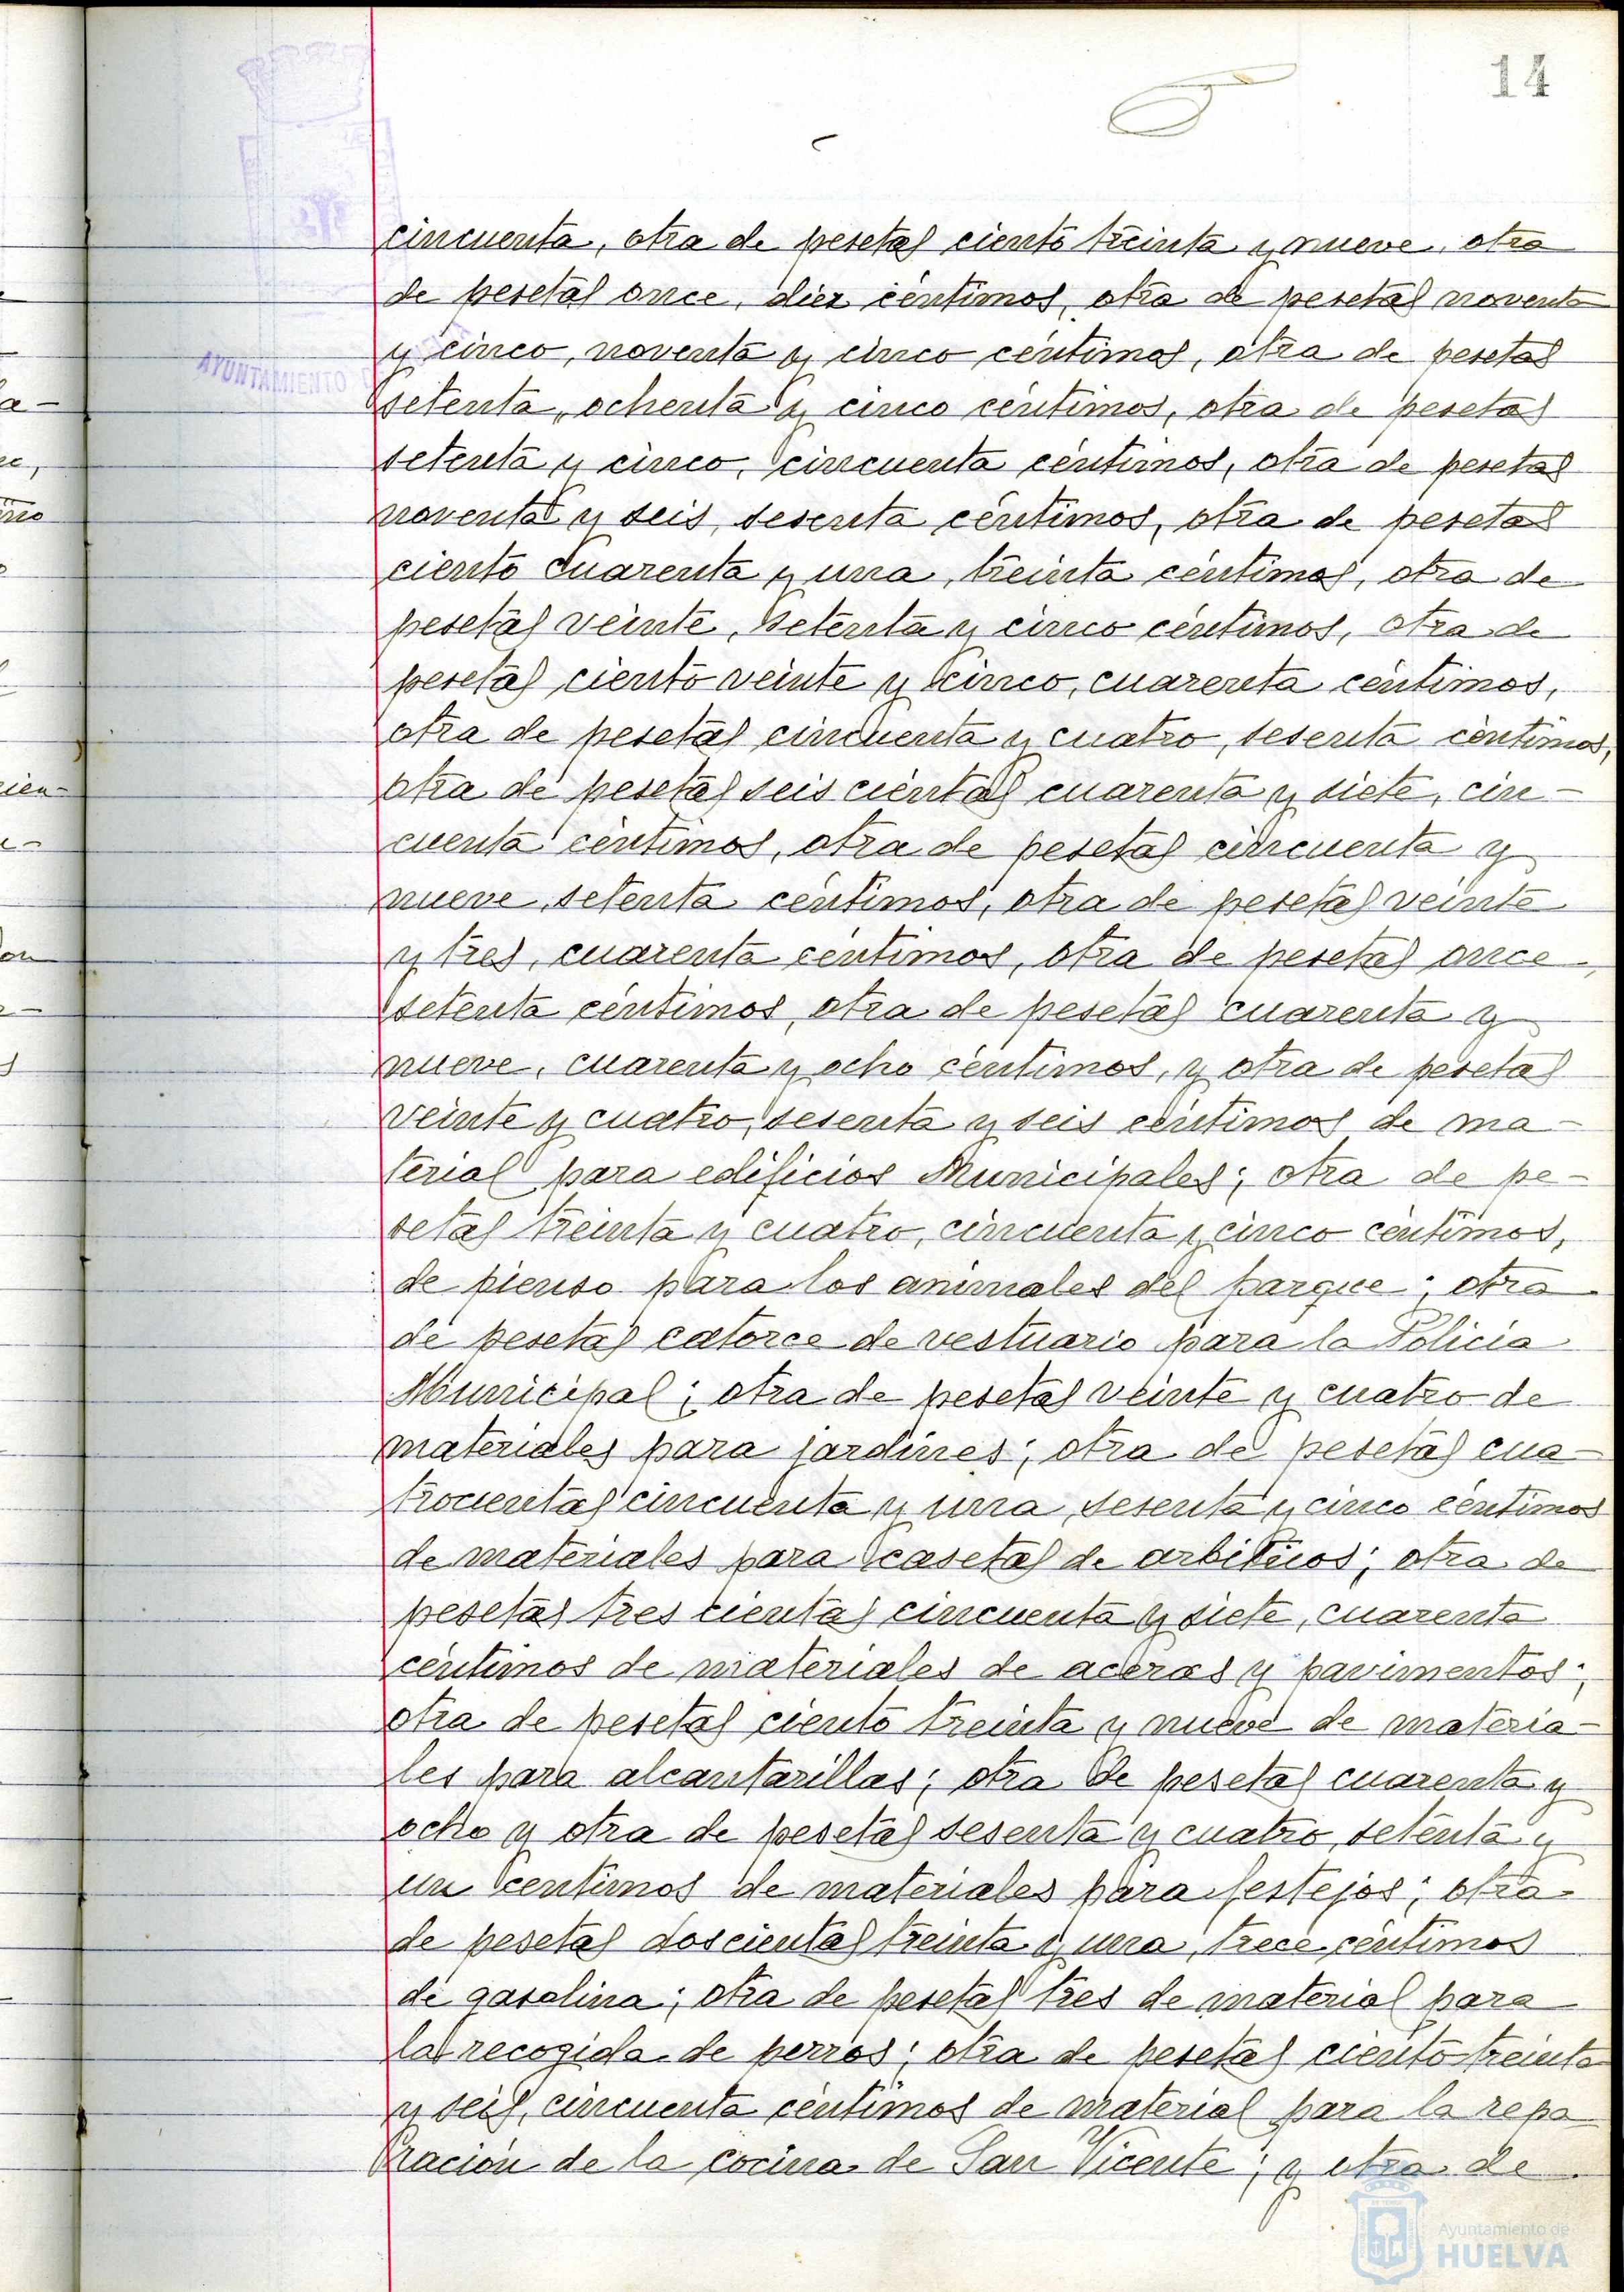 14
cincuenta, otra de pesetas ciento treinta y nueve, otra
de pesetas once, diez céntimos, otra de pesetas noventa
y cinco, noventa y cinco céntimos, otra de pesetas
setenta, ochenta y cinco céntimos, otra de pesetas
setenta y cinco, cincuenta céntimos, otra de pesetas
noventa y seis, sesenta céntimos, otra de pesetas
ciento cuarenta y una, treinta céntimos, otra de
pesetas veinte, setenta y cinco céntimos, otra de
pesetas ciento veinte y cinco, cuarenta céntimos,
otra de pesetas cincuenta y cuatro, sesenta céntimos,
otra de pesetas seis cientas cuarenta y siete, cin-
cuenta céntimos, otra de pesetas cincuenta y
nueve, setenta céntimos, otra de pesetas veinte
y tres, cuarenta céntimos, otra de pesetas once,
setenta céntimos, otra de pesetas cuarenta y
nueve, cuarenta y ocho céntimos, y otra de pesetas
veinte y cuatro, sesenta y seis céntimos de ma-
terial para edificios Municipales; otra de pe-
setas treinta y cuatro, cincuenta y cinco céntimos,
de pienso para los animales del parque; otra
de pesetas catorce de vestuario para la Policia
Municipal; otra de pesetas veinte y cuatro de
materiales para jardines; otra de pesetas cua-
trocientas cincuenta y una, sesenta y cinco céntimos
de materiales para casetas de arbitrios; otra de
pesetas tres cientas cincuenta y siete, cuarenta
céntimos de materiales de aceras y pavimentos;
otra de pesetas ciento treinta y nueve de materia-
les para alcantarillas; otra de pesetas cuarenta y
ocho y otra de pesetas sesenta y cuatro, setenta y
un centimos de materiales para festejos; otra
de pesetas doscientas treinta y una, trece céntimos
de gasolina; otra de pesetas tres de material para
la recogida de perros; otra de pesetas ciento treinta
y seis, cincuenta céntimos de material para la repa
ración de la cocina de San Vicente; y otra de
AYUNTAMIENTO
Ayuntamiento de
HUELVA